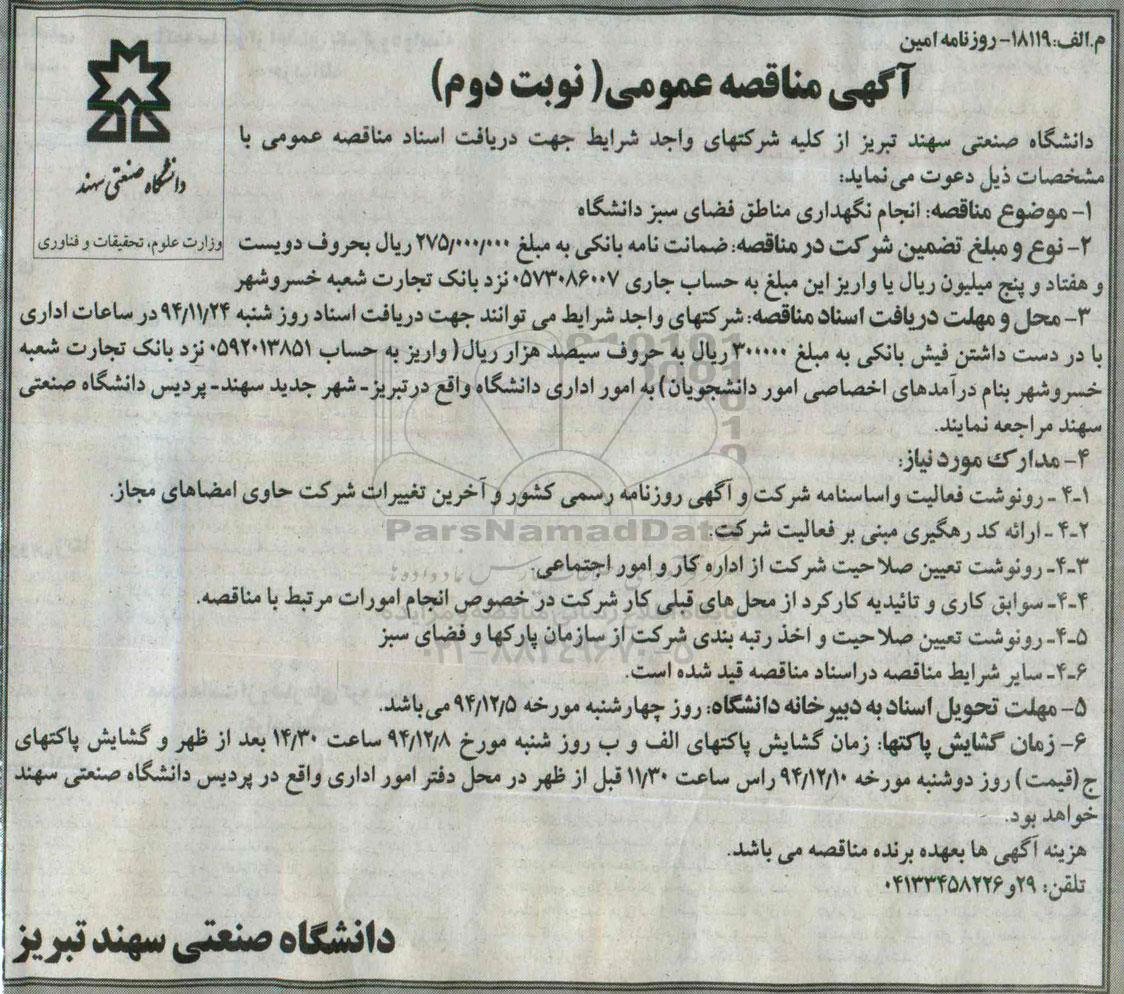 م.الف:۱۸۱۱۹- روزنامه امین
آگهی مناقصه عمومی( نوبت دوم)
دانشگاه صنعتی سهند
وزارت علوم، تحقیقات و فناوری
دانشگاه صنعتی سهند تبریز از کلیه شرکتهای واجد شرایط جهت دریافت اسناد مناقصه عمومی با
مشخصات ذیل دعوت می نماید:
۱- موضوع مناقصه: انجام نگهداری مناطق فضای سبز دانشگاه
۲- نوع و مبلغ تضمین شرکت در مناقصه: ضمانت نامه بانکی به مبلغ ۲۷۵/۰۰۰/۰۰۰ ریال بحروف دویست
و هفتاد و پنج میلیون ریال یا واریز این مبلغ به حساب جاری ۰۵۷۳۰۸۶۰۰۷ نزد بانک تجارت شعبه خسروشهر
۳- محل و مهلت دریافت اسناد مناقصه: شرکتهای واجد شرایط می توانند جهت دریافت اسناد روز شنبه ۹۴/۱۱/۲۴ در ساعات اداری
با در دست داشتن فیش بانکی به مبلغ ۳۰۰۰۰۰ ریال به حروف سیصد هزار ریال( واریز به حساب ۰۵۹۲۰۱۳۸۵۱ نزد بانک تجارت شعبه
خسروشهر بنام درآمدهای اختصاصی امور دانشجویان) به امور اداری دانشگاه واقع درتبریز- شهر جدید سهند- پردیس دانشگاه صنعتی
سهند مراجعه نمایند.
۴- مدارک مورد نیاز:
۴-۱ - رونوشت فعالیت واساسنامه شرکت و آگهی روزنامه رسمی کشور و آخرین تغییرات شرکت حاوی امضاهای مجاز.
۴-۲ - ارائه کد رهگیری مبنی بر فعالیت شرکت.
ParsNamadData
۴-۳- رونوشت تعیین صلاحیت شرکت از اداره کار و امور اجتماعی.
۴-۴- سوابق کاری و تائیدیه کارکرد از محل های قبلی کار شرکت در خصوص انجام امورات مرتبط با مناقصه.
۴-۵- رونوشت تعیین صلاحیت و اخذ رتبه بندی شرکت از سازمان پارکها و فضای سبز
۴-۶- سایر شرایط مناقصه دراسناد مناقصه قید شده است.
۵- مهلت تحویل اسناد به دبیرخانه دانشگاه: روز چهارشنبه مورخه ۹۴/۱۲/۵ می باشد.
۶- زمان گشایش پاکتها: زمان گشایش پاکتهای الف و ب روز شنبه مورخ ۹۴/۱۲/۸ ساعت ۱۴/۳۰ بعد از ظهر و گشایش پاکتهای
ج (قیمت) روز دوشنبه مورخه ۹۴/۱۲/۱۰ راس ساعت ۱۱/۳۰ قبل از ظهر در محل دفتر امور اداری واقع در پردیس دانشگاه صنعتی سهند
خواهد بود.
هزینه آگهی ها بعهده برنده مناقصه می باشد.
تلفن: ۲۹و۰۴۱۳۳۴۵۸۲۲۶
دانشگاه صنعتی سهند تبریز